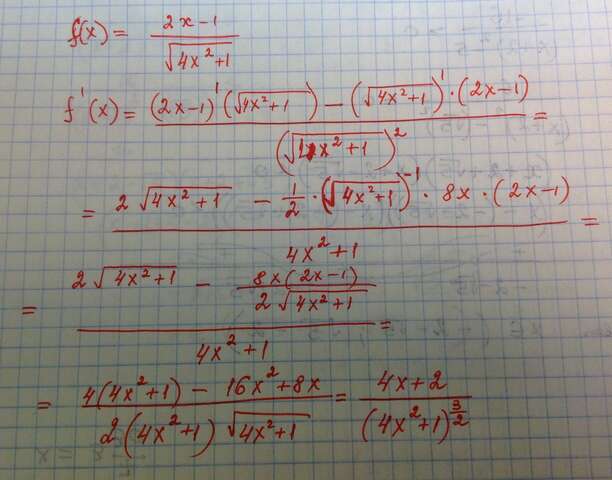 f(x) = (2x-1)/√(4x²+1)
f'(x) = ((2x-1)'(√(4x²+1)) - (√(4x²+1))'·(2x-1))/(√(4x²+1))² =
= (2√(4x²+1) - 1/2·(√(4x²+1))⁻¹·8x·(2x-1))/(4x²+1) =
= (2√(4x²+1) - (8x(2x-1))/(2√(4x²+1)))/(4x²+1) =
= (4(4x²+1) - 16x²+8x)/(2(4x²+1)√(4x²+1)) = (4x+2)/(4x²+1)^(3/2)